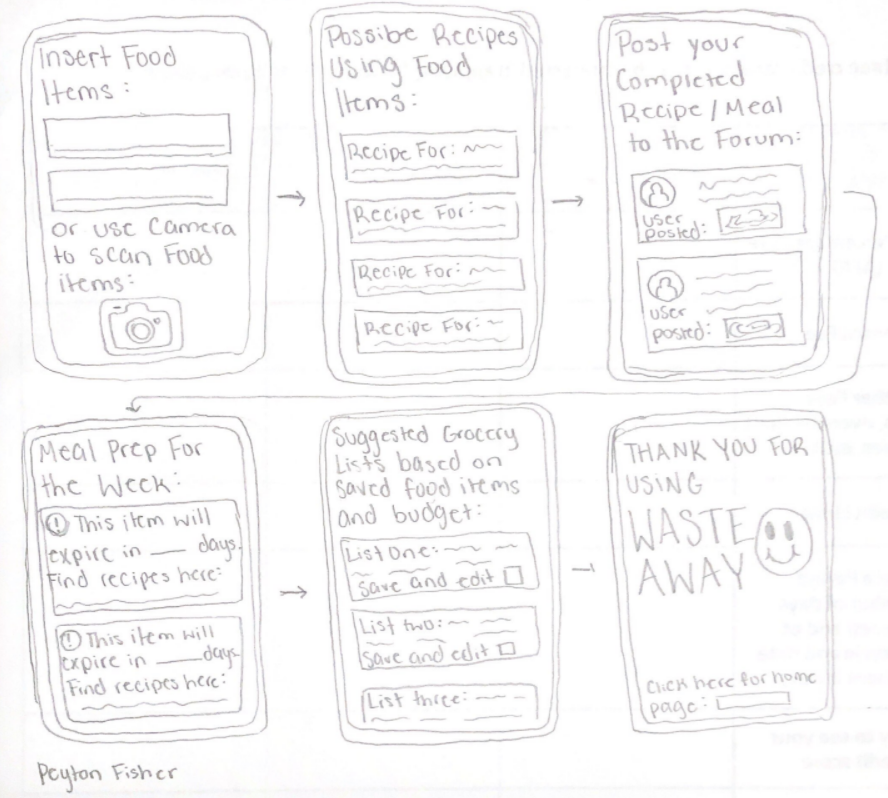 Insert Food
Items:
or use Camera
to scan Food
items:
Possibe Recipes
Using Food
Items:
Recipe For:
Recipe For:
Recipe For:
Recipe For:
Post your
Completed
Recipe/Meal
to the Forum:
user
posted:
user
posted:
Meal Prep For
the Week:
! This item will
expire in ___ days.
Find recipes here:
! This item will
expire in ___ days
Find recipes here:
Suggested Grocery
Lists based on
saved food items
and budget:
List One:
save and edit
List two:
save and edit
List three:
THANK YOU FOR
USING
WASTE
AWAY
Click here for home
page:
Peyton Fisher